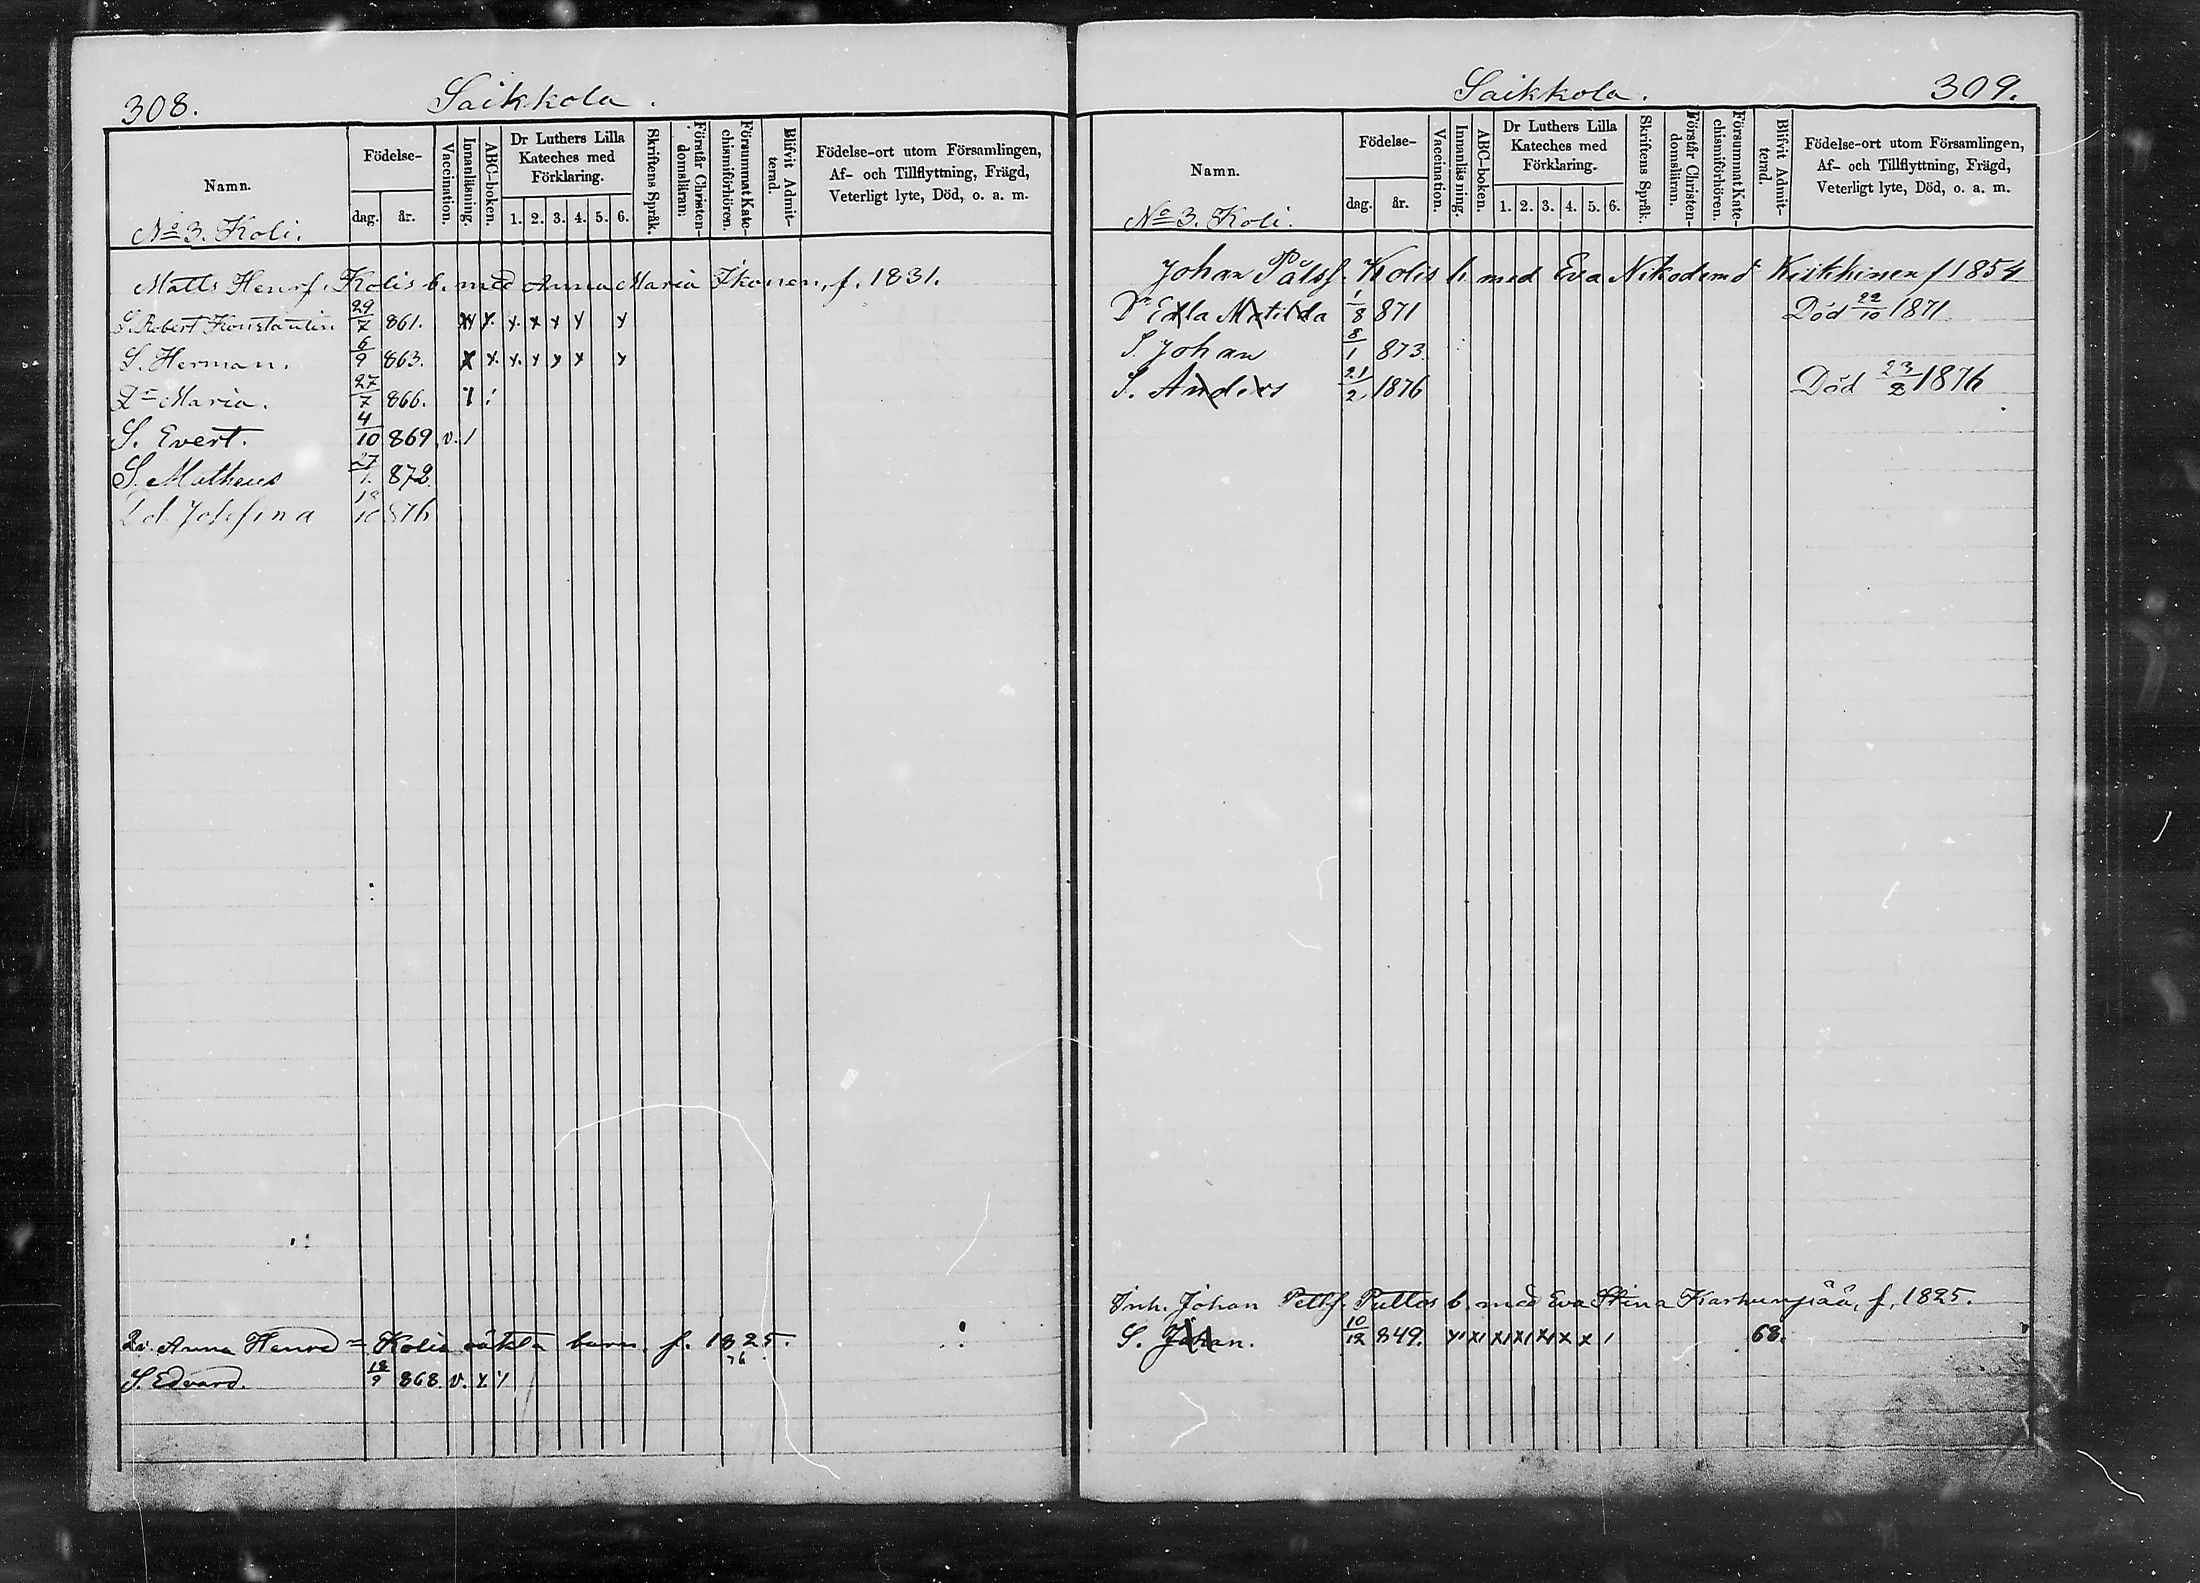 308.
Saikkola.
Namn.
Födelse-
dag.
år.
Vaccination.
Innanläsning.
ABC-boken.
Dr Luthers Lilla
Kateches med
Förklaring.
1. 2. 3. 4. 5. 6.
Skriftens Språk.
Förstår Christen-
domsläran.
Försummat Kate-
chismiförhören.
Blifvit Admit-
terad.
Födelse-ort utom Församlingen,
Af- och Tillflyttning, Frägd,
Veterligt lyte, Död, o. a. m.
No 3. Koli.
Matts Henrs. Kolis b. med Anna Maria Ikonen, f. 1831.
S. Robert Konstantin 29/7 861. x x x x x x x
S. Herman. 6/9 863. x x x x x x x
Dr Maria. 27/7 866.
S. Evert. 4/10 869. v. /
S. Matheus 27/1. 872
Dd. Josefina 18/10 876
Anna Henrd Kolis oäkta barn f. 1825.
76
S. Edvard. 18/9 868. v. x
Saikkola.
309.
Namn.
Födelse-
dag.
år.
Vaccination.
Innanläsning.
ABC-boken.
Dr Luthers Lilla
Kateches med
Förklaring.
1. 2. 3. 4. 5. 6.
Skriftens Språk.
Förstår Christen-
domsläran.
Försummat Kate-
chismiförhören.
Blifvit Admit-
terad.
Födelse-ort utom Församlingen,
Af- och Tillflyttning, Frägd,
Veterligt lyte, Död, o. a. m.
No 3. Koli.
Johan Pålss. Kolis b. med Eva Nikodemd Kiikkinen f 1854
Dr Edla Matilda 1/8 871 Död 22/10 1871
S. Johan 8/1 873
S. Anders 21/2 1876 Död 23/2 1876
Inh. Johan Pettss. Pullis b. med Eva Stina Karhunpää, f. 1825.
S. Johan. 10/12 849. 68.